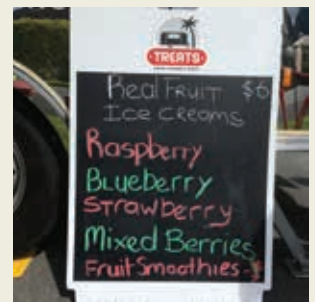 TREATS
Real FRUIT $6
Ice CReamS
Raspberry
BLueberry
STrawberry
Mixed Berries
FruitSmoothies-